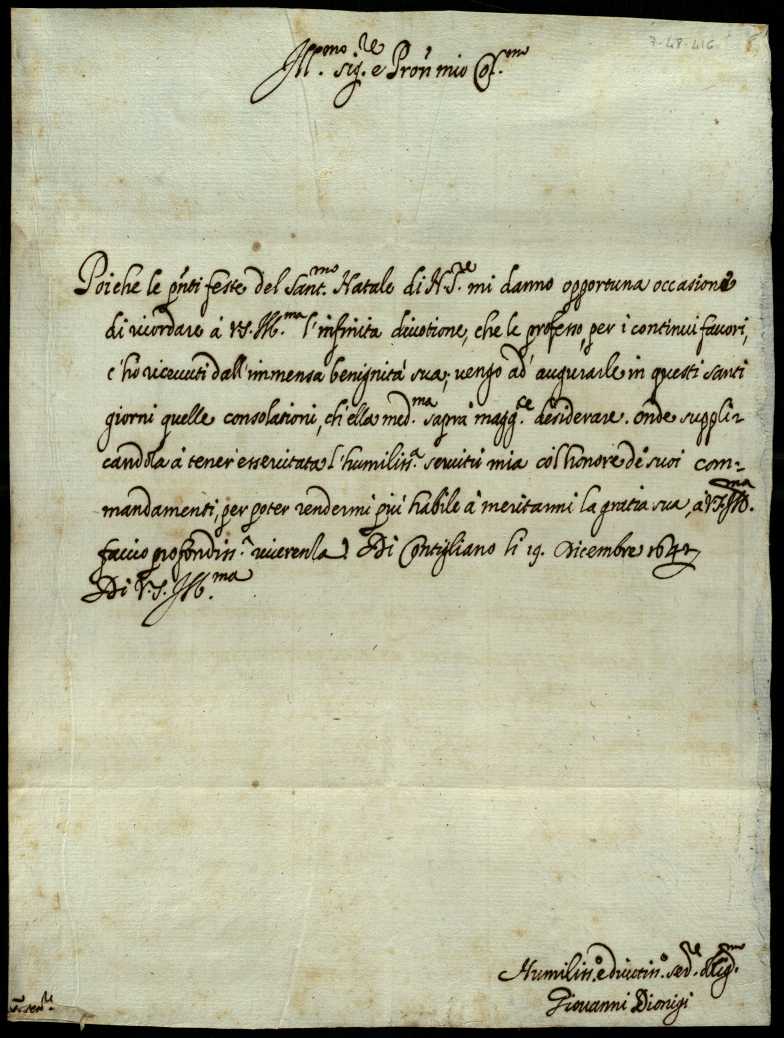 7-48-416
Ill.mo sig.re e Pron mio Col.mo
Poiche le pnti feste del Sant.mo Natale di N.S.re mi danno opportuna occasione
di ricordare à V.S. Ill.ma l'infinita divotione, che le professo, per i continui favori,
c'ho ricevuti dall'immensa benignità sua; vengo ad augurarle in questi santi
giorni quelle consolationi, ch'ella med.ma saprà magg.re desiderare. onde suppli-
candola à tener essercitata l'humiliss.a servitù mia col honore de suoi com-
mandamenti, per poter rendermi più habile à meritarmi la gratia sua, à V.S. Ill.ma
faccio profondiss.a riverenza. Di Contigliano li 19. Dicembre 1647
Di V.S. Ill.ma
Humiliss.o e divotiss.o ser.re oblig.mo
Giovanni Dionigi